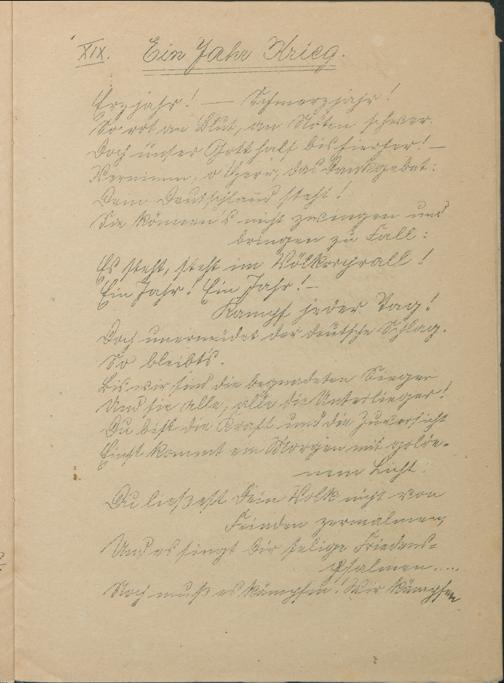 XIX. Ein Jahr Krieg.
Erzjahr! — Schmerzjahr!
So rot an Blut, an Nöten schwer
Doch unser Gott half bis hierher! —
Vernimm, o Herr, das Dankgebet:
Dem Deutschland steht!
Sie können's nicht zwingen und
bringen zu Fall:
Es steht, steht im Völkerprall!
Ein Jahr! Ein Jahr! —
Kampf jeder Tag!
Doch unermüdet der deutsche Schlag.
So bleibts.
Bis wir sind die begnadeten Sieger
Und sie alle, alle die Unterlieger!
Du bist die Kraft und die Zuversicht
Einst kommt ein Morgen mit golde-
nem Licht:
Du ließest Dein Volk nicht von
Feinden zermalmen
Und es singt dir selige Friedens-
psalmen....
Noch muß es kämpfen! Wir kämpfen